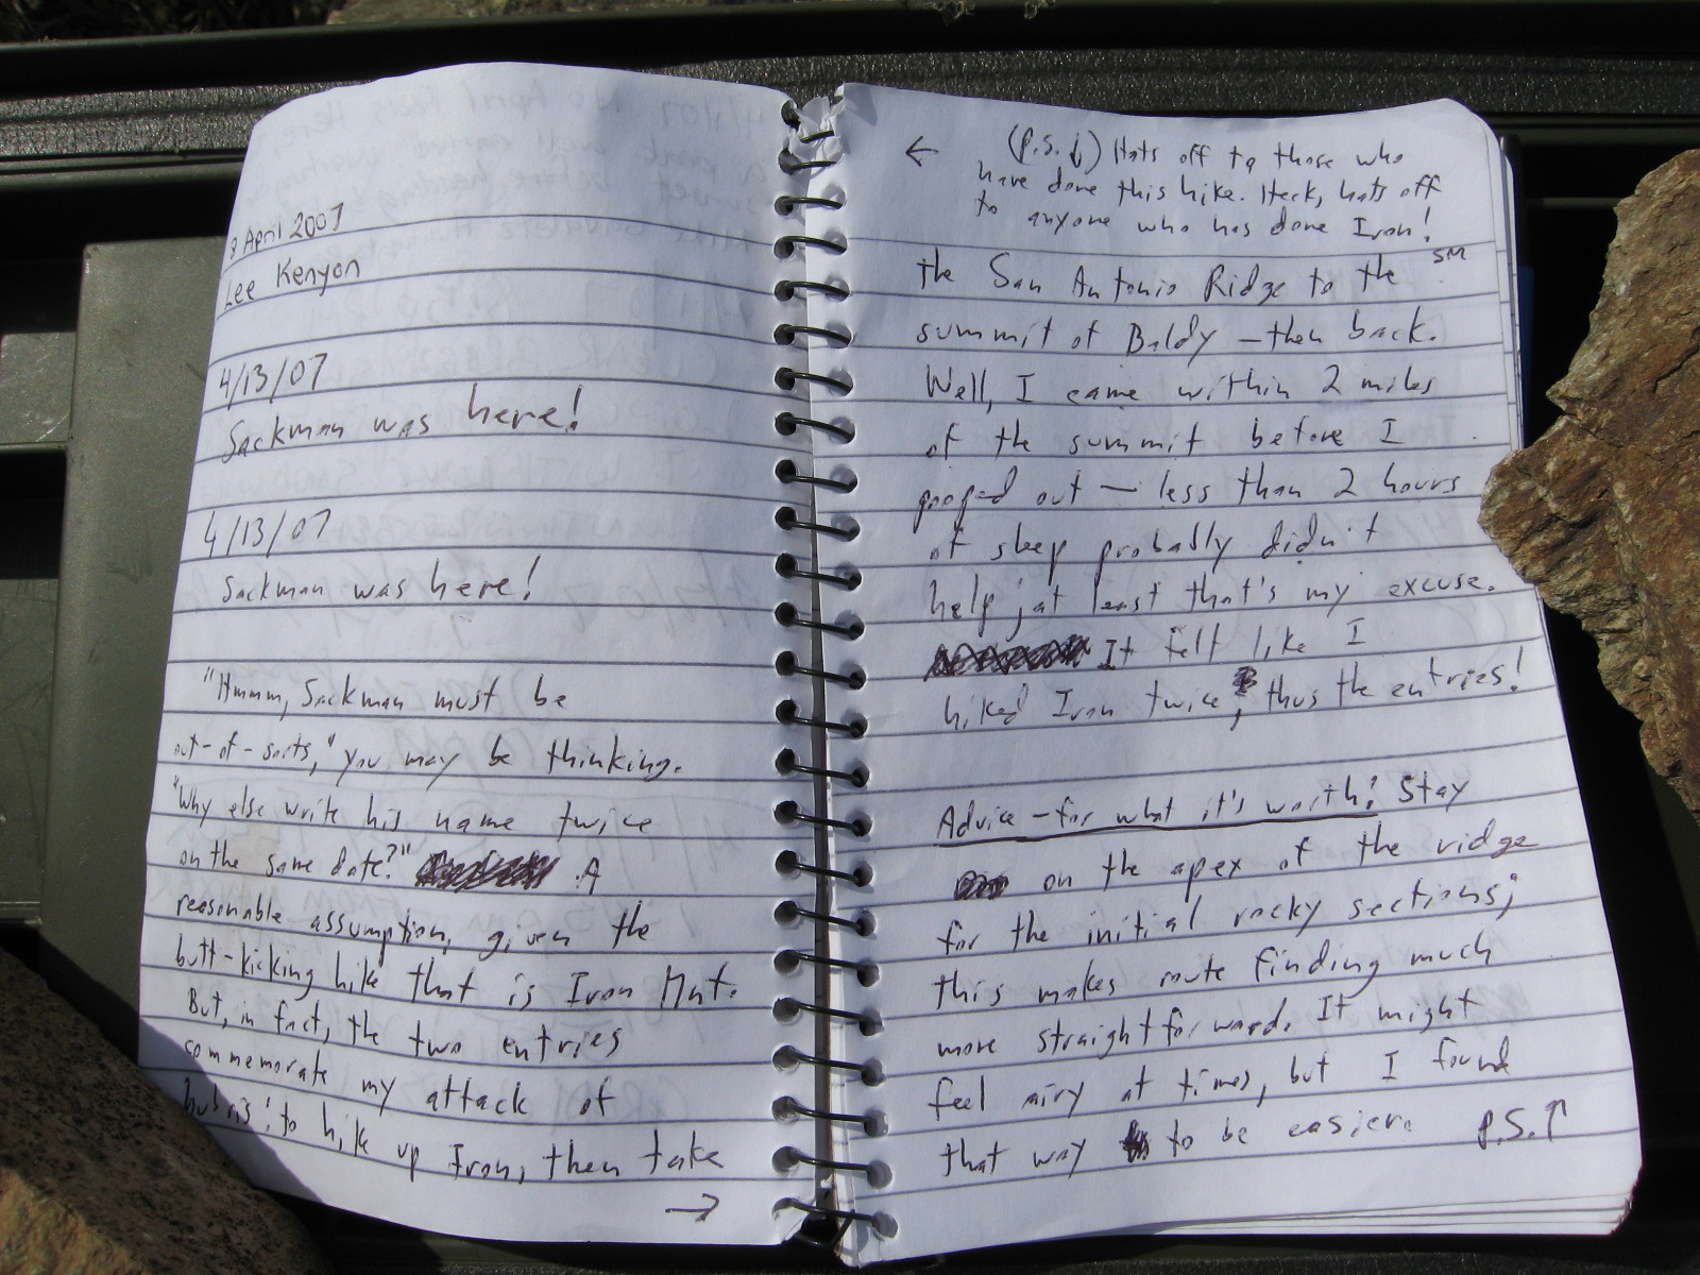 9 April 2007
Lee Kenyon
4/13/07
Sackman was here!
4/13/07
Sackman was here!
"Hmmm, Sackman must be
out-of-sorts," you may be thinking.
"Why else write his name twice
on the same date?" A
reasonable assumption, given the
butt-kicking hike that is Iron Mnt.
But, in fact, the two entries
commemorate my attack of
hubris: to hike up Iron, then take
→
← (P.S.↓) Hats off to those who
have done this hike. Heck, hats off
to anyone who has done Iron!
SM
the San Antonio Ridge to the
summit of Baldy – then back.
Well, I came within 2 miles
of the summit before I
pooped out – less than 2 hours
of sleep probably didn't
help; at least that's my excuse.
It felt like I
hiked Iron twice, thus the entries!
Advice – for what it's worth: Stay
on the apex of the ridge
for the initial rocky sections;
this makes route finding much
more straightforward. It might
feel airy at times, but I found
that way to be easier. P.S.↑